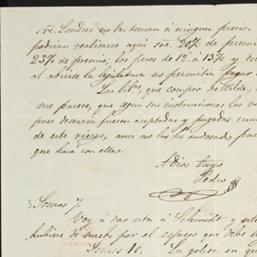 sre. Londres no las toman á ningun precio.
podrian realizarse aquí sre. 20% de premio
23% de premio; los pesos de 12 á 13% y
al abrirse la legislatura no permitirá pagar
Las lib.s que compro de Wilde,
me parece, que segun sus instrucciones las
pues deberian fueron aceptadas y pagadas
de este riesgo; aun no las he endosado
que hará con ellas.
A Dios tuyo
Pedro
Lomas 7.
Voy á dar esta á Schmidt y
hubiere de vuelta por el expreso que debe
Lomas 10. La goleta en que